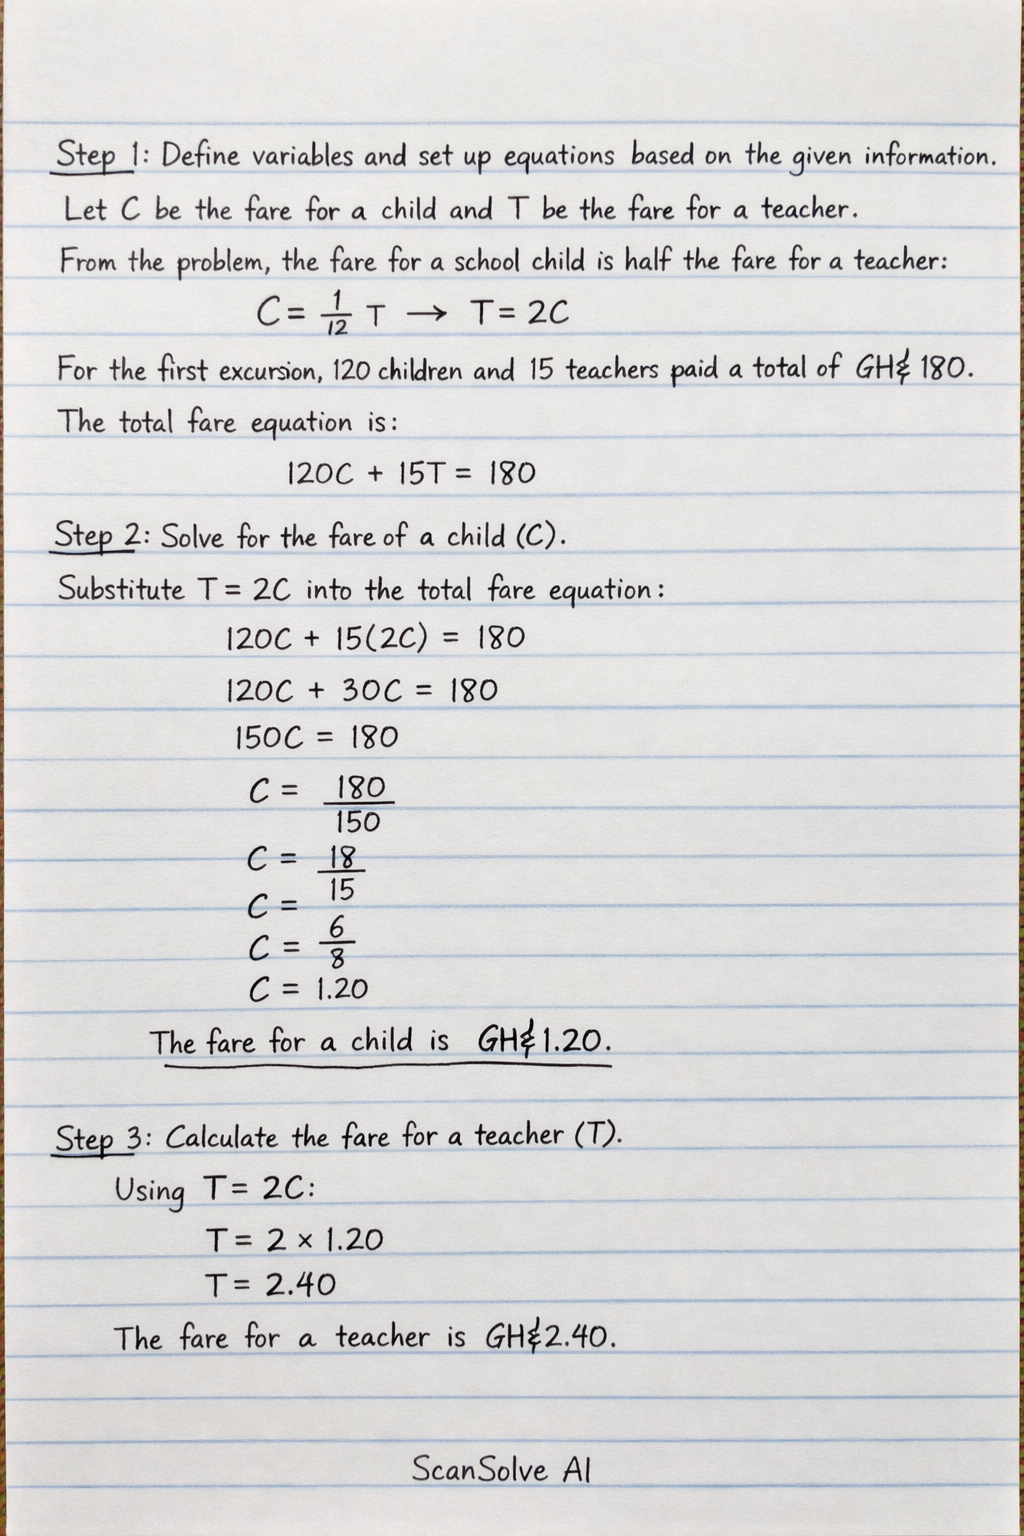 Step 1: Define variables and set up equations based on the given information.
Let C be the fare for a child and T be the fare for a teacher.
From the problem, the fare for a school child is half the fare for a teacher:
C = 1/12 T → T = 2C
For the first excursion, 120 children and 15 teachers paid a total of GH₵ 180.
The total fare equation is:
120C + 15T = 180
Step 2: Solve for the fare of a child (C).
Substitute T = 2C into the total fare equation:
120C + 15(2C) = 180
120C + 30C = 180
150C = 180
C = 180/150
C = 18/15
C =
C = 6/8
C = 1.20
The fare for a child is GH₵1.20.
Step 3: Calculate the fare for a teacher (T).
Using T = 2C:
T = 2 × 1.20
T = 2.40
The fare for a teacher is GH₵2.40.
ScanSolve AI